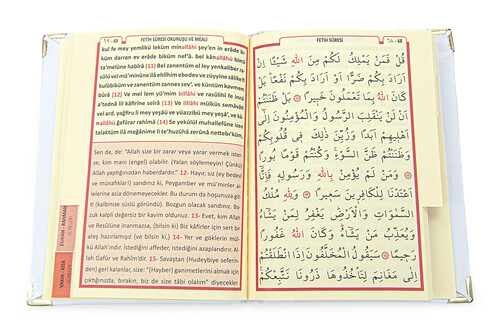 ٦٩ - 69 FETİH SÛRESİ OKUNUŞU ve MEALİ
kul fe mey yemlikü leküm minallâhi şey'en in erâde bi-
küm darran ev erâde biküm nef'â, bel kânallâhü bimâ
ta'melûne habîrâ (11) Bel zanentüm el ley yenkaliber ra-
sûlü vel mü'minûne ilâ ehlîhim ebedev ve züyyine zâlike fî
kulûbiküm ve zanentüm zannes sev'. ve küntüm kavmem
bûrâ (12) Ve mel lem yü'mim billâhi ve rasûlihî fe innâ
a'tednâ lil kâfirîne seîrâ (13) Ve lillâhi mülküs semâvâti
vel ard, yağfiru li mey yeşâü ve yüazzibü mey yeşâ', ve kâ-
nallâhü ğafûrar rahîmâ (14) Se yekûlül muhallefûne izen
talaktüm ilâ meğânime li te'huzûhâ zerûnâ nettebi'küm,
Sen de, de: "Allah size bir zarar veya yarar vermek ister-
se, kim mani (engel) olabilir. (Yalan söylemeyin! Çünkü)
Allah yaptığınızdan haberdardır." 12- Hayır, siz (ey bedevi
ve münafıklar!) sandınız ki, Peygamber ve mü'minler ai-
lelerine asla dönemeyecekler. Bu durum da hoşunuza gitti
(kalbinize süslü göründü). Bozgun olacak sandınız. Bo-
zuk kalpli değersiz bir kavim oldunuz. 13- Evet, kim Allah
ve Resûlüne inanmazsa, (bilsin ki) Biz kâfirler için sert bir
ateş hazırlamışız (ve bilsin ki,) 14- Yer ve göklerin mül-
kü Allah'ındır. İstediğini affeder, istediğini azaplandırır. Al-
lah Gafûr ve Rahîm'dir. 15- Savaştan (Hudeybiye seferin-
den) geri kalanlar, size: "(Hayber) ganimetlerini almak için
çıktığınızda, bırakın, biz de size tâbi olalım" diyecekler.
DUHAN - RAHMAN
VAKIA - KISA
SURELER
FETİH SÛRESİ ٦٨ - 68
قُلْ فَمَنْ يَمْلِكُ لَكُمْ مِنَ اللّٰهِ شَيْـًٔا اِنْ
اَرَادَ بِكُمْ ضَرًّا اَوْ اَرَادَ بِكُمْ نَفْعًاۜ بَلْ
كَانَ اللّٰهُ بِمَا تَعْمَلُونَ خَبِيرًا بَلْ ظَنَنْتُمْ
اَنْ لَنْ يَنْقَلِبَ الرَّسُولُ وَالْمُؤْمِنُونَ اِلٰٓى
اَهْلِيهِمْ اَبَدًا وَزُيِّنَ ذٰلِكَ فِي قُلُوبِكُمْ
وَظَنَنْتُمْ ظَنَّ السَّوْءِۚ وَكُنْتُمْ قَوْمًا بُورًا
وَمَنْ لَمْ يُؤْمِنْ بِاللّٰهِ وَرَسُولِهٖ فَاِنَّٓا
اَعْتَدْنَا لِلْكَافِرِينَ سَعِيرًا وَلِلّٰهِ مُلْكُ
السَّمٰوَاتِ وَالْاَرْضِۜ يَغْفِرُ لِمَنْ يَشَٓاءُ
وَيُعَذِّبُ مَنْ يَشَٓاءُۜ وَكَانَ اللّٰهُ غَفُورًا
رَحِيمًا سَيَقُولُ الْمُخَلَّفُونَ اِذَا انْطَلَقْتُمْ
اِلٰى مَغَانِمَ لِتَأْخُذُوهَا ذَرُونَا نَتَّبِعْكُمْۚ